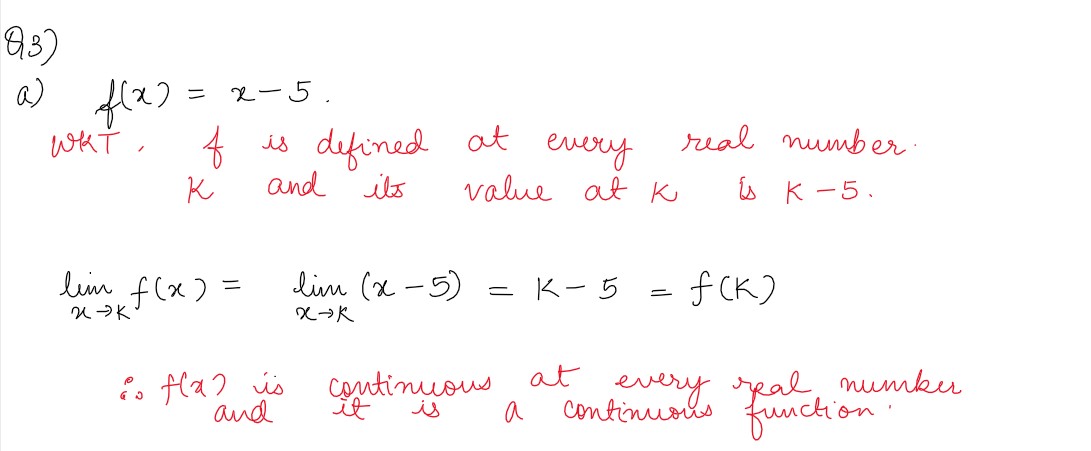 Q3)
a) f(x) = x - 5 .
WKT, f is defined at every real number.
K and its value at K is K - 5.
lim x→K f(x) = lim x→K (x - 5) = K - 5 = f(K)
∴ f(x) is continuous at every real number
and it is a continuous function.